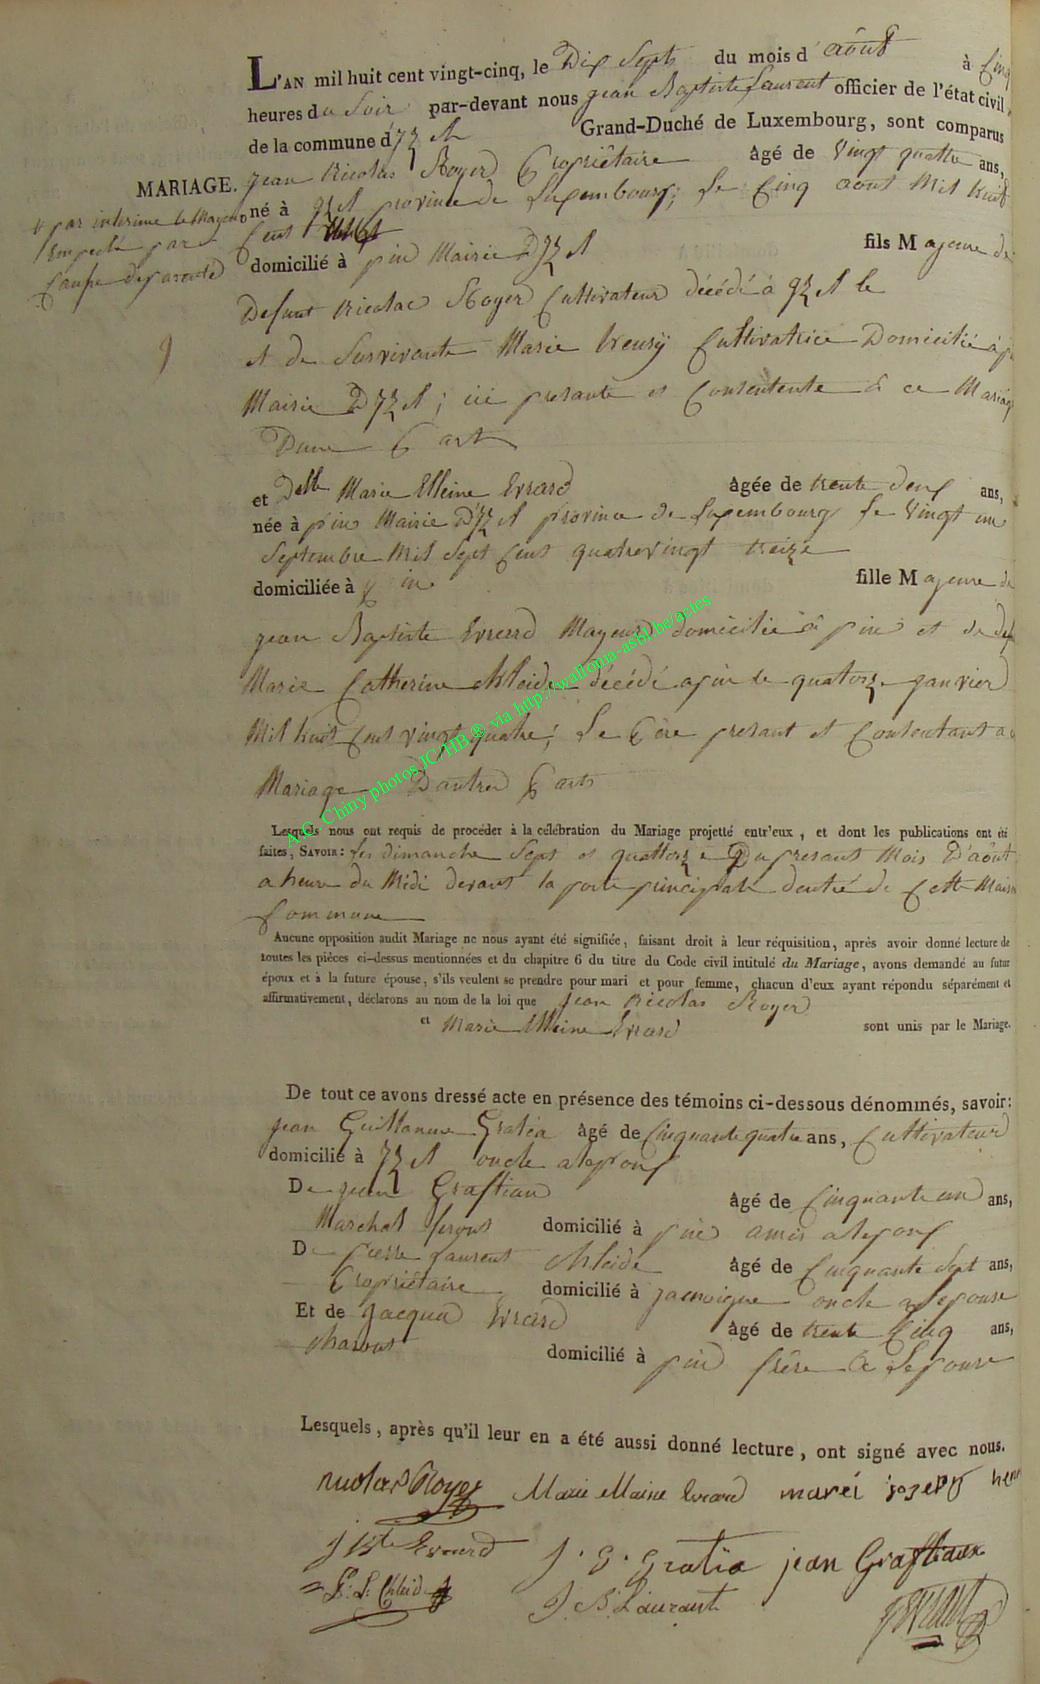 L'AN mil huit cent vingt-cinq, le Dix Sept du mois d'août à Cinq
heures du Soir par-devant nous jean Baptiste Laurent officier de l'état civil
de la commune d' Grand-Duché de Luxembourg, sont comparus
MARIAGE.
jean Nicolas Royer Propriétaire âgé de vingt quatre ans,
né à province de Luxembourg, le Cinq aout Mil huit
par interime le Mayeur
Empeché par
Cause de parenté
Cent
domicilié à pin Mairie fils Majeure de
Defunt Nicolas Royer Cultivateur décédé à le
et de Survivante Marie Cultivatrice Domicilié à
Mairie ; ici presante et Consentente à ce Mariage
Dune Part
et Delle Marie Elleine Evrard âgée de trente deux ans,
née à pin Mairie province de Luxembourg le Vingt un
Septembre Mil Sept Cent quatrevingt treize
domiciliée à pin fille Majeure de
jean Baptiste Evrard Mayeur domicilié à pin et de
Marie Catherine décédé a pin le quatorze janvier
Mil huit Cent vingt quatre; Le Père presant et Consentant a
Mariage Dautre Part
A.C. Chiny photos JC/HB ® via http://wallonia-asbl.be/actes
Lesquels nous ont requis de procéder à la célébration du Mariage projetté entr'eux, et dont les publications ont été
faites, SAVOIR: les dimanche Sept et quattorze Du presant Mois D'août
a heure du Midi devant la porte principale dentré de Cette Maison
Commune
Aucune opposition audit Mariage ne nous ayant été signifiée, faisant droit à leur réquisition, après avoir donné lecture de
toutes les pièces ci-dessus mentionnées et du chapitre 6 du titre du Code civil intitulé du Mariage, avons demandé au futur
époux et à la future épouse, s'ils veulent se prendre pour mari et pour femme, chacun d'eux ayant répondu séparément et
affirmativement, déclarons au nom de la loi que jean Nicolas Royer
et Marie Elleine Evrard sont unis par le Mariage.
De tout ce avons dressé acte en présence des témoins ci-dessous dénommés, savoir:
jean Guillaume Gratia âgé de Cinquante quatre ans, Cultivateur
domicilié à oncle
De jean Graftiau âgé de Cinquante un ans,
Marchal ferant domicilié à pin amis
De pierre Laurent âgé de Cinquante Sept ans,
Propriétaire domicilié à jamoigne oncle
Et de Jacque Evrard âgé de trente Cinq ans,
domicilié à pin frère à Lepouse
Lesquels, après qu'il leur en a été aussi donné lecture, ont signé avec nous.
nicolas Royer Marie elleine Evrard marei josepg
J Bte Evrard J. G. Gratia jean Graftiaux
J. B. Laurant